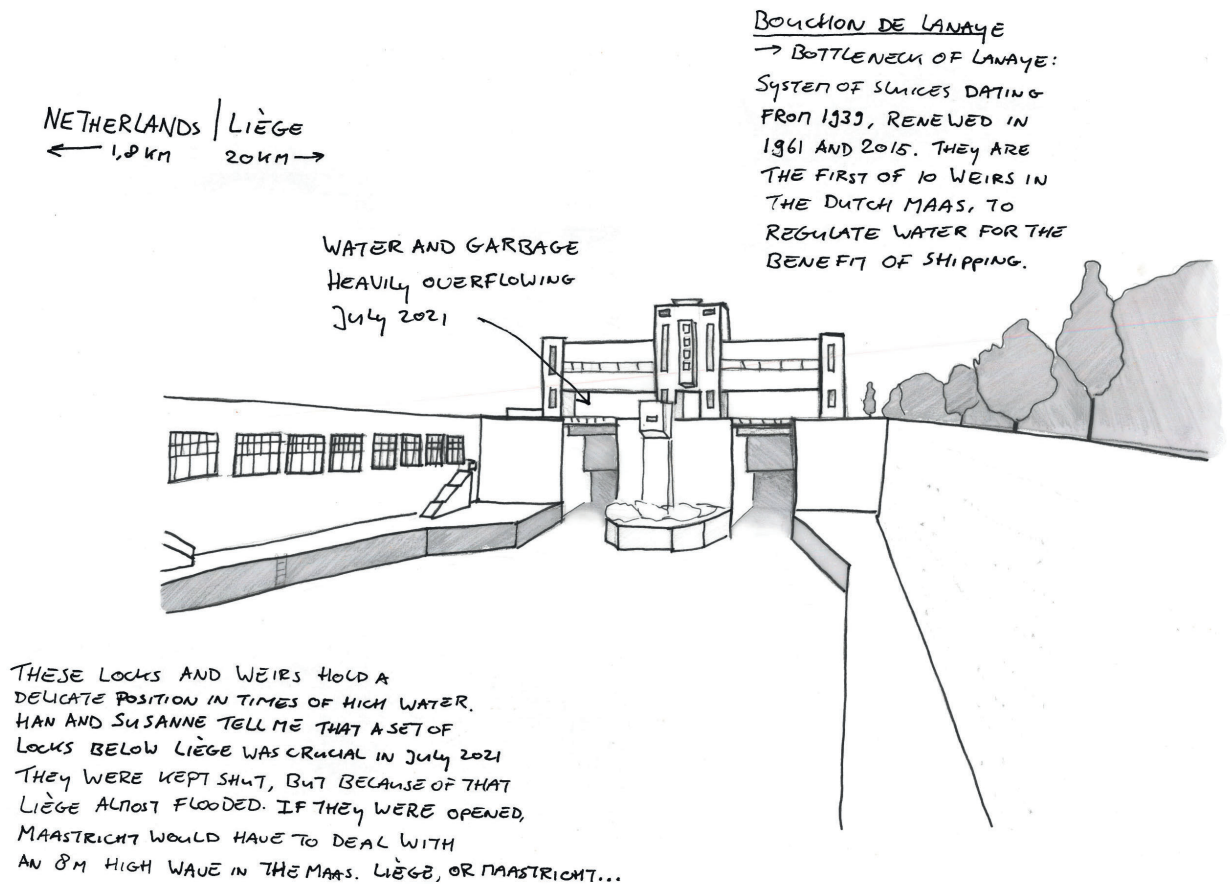 NETHERLANDS | LIÈGE
← 1,8 KM 20 KM →
BOUCHON DE LANAYE
→ BOTTLENECK OF LANAYE:
SYSTEM OF SLUICES DATING
FROM 1939, RENEWED IN
1961 AND 2015. THEY ARE
THE FIRST OF 10 WEIRS IN
THE DUTCH MAAS, TO
REGULATE WATER FOR THE
BENEFIT OF SHIPPING.
WATER AND GARBAGE
HEAVILY OVERFLOWING
JULY 2021
THESE LOCKS AND WEIRS HOLD A
DELICATE POSITION IN TIMES OF HIGH WATER.
HAN AND SUSANNE TELL ME THAT A SET OF
LOCKS BELOW LIÈGE WAS CRUCIAL IN JULY 2021
THEY WERE KEPT SHUT, BUT BECAUSE OF THAT
LIÈGE ALMOST FLOODED. IF THEY WERE OPENED,
MAASTRICHT WOULD HAVE TO DEAL WITH
AN 8M HIGH WAVE IN THE MAAS. LIÈGE, OR MAASTRICHT...